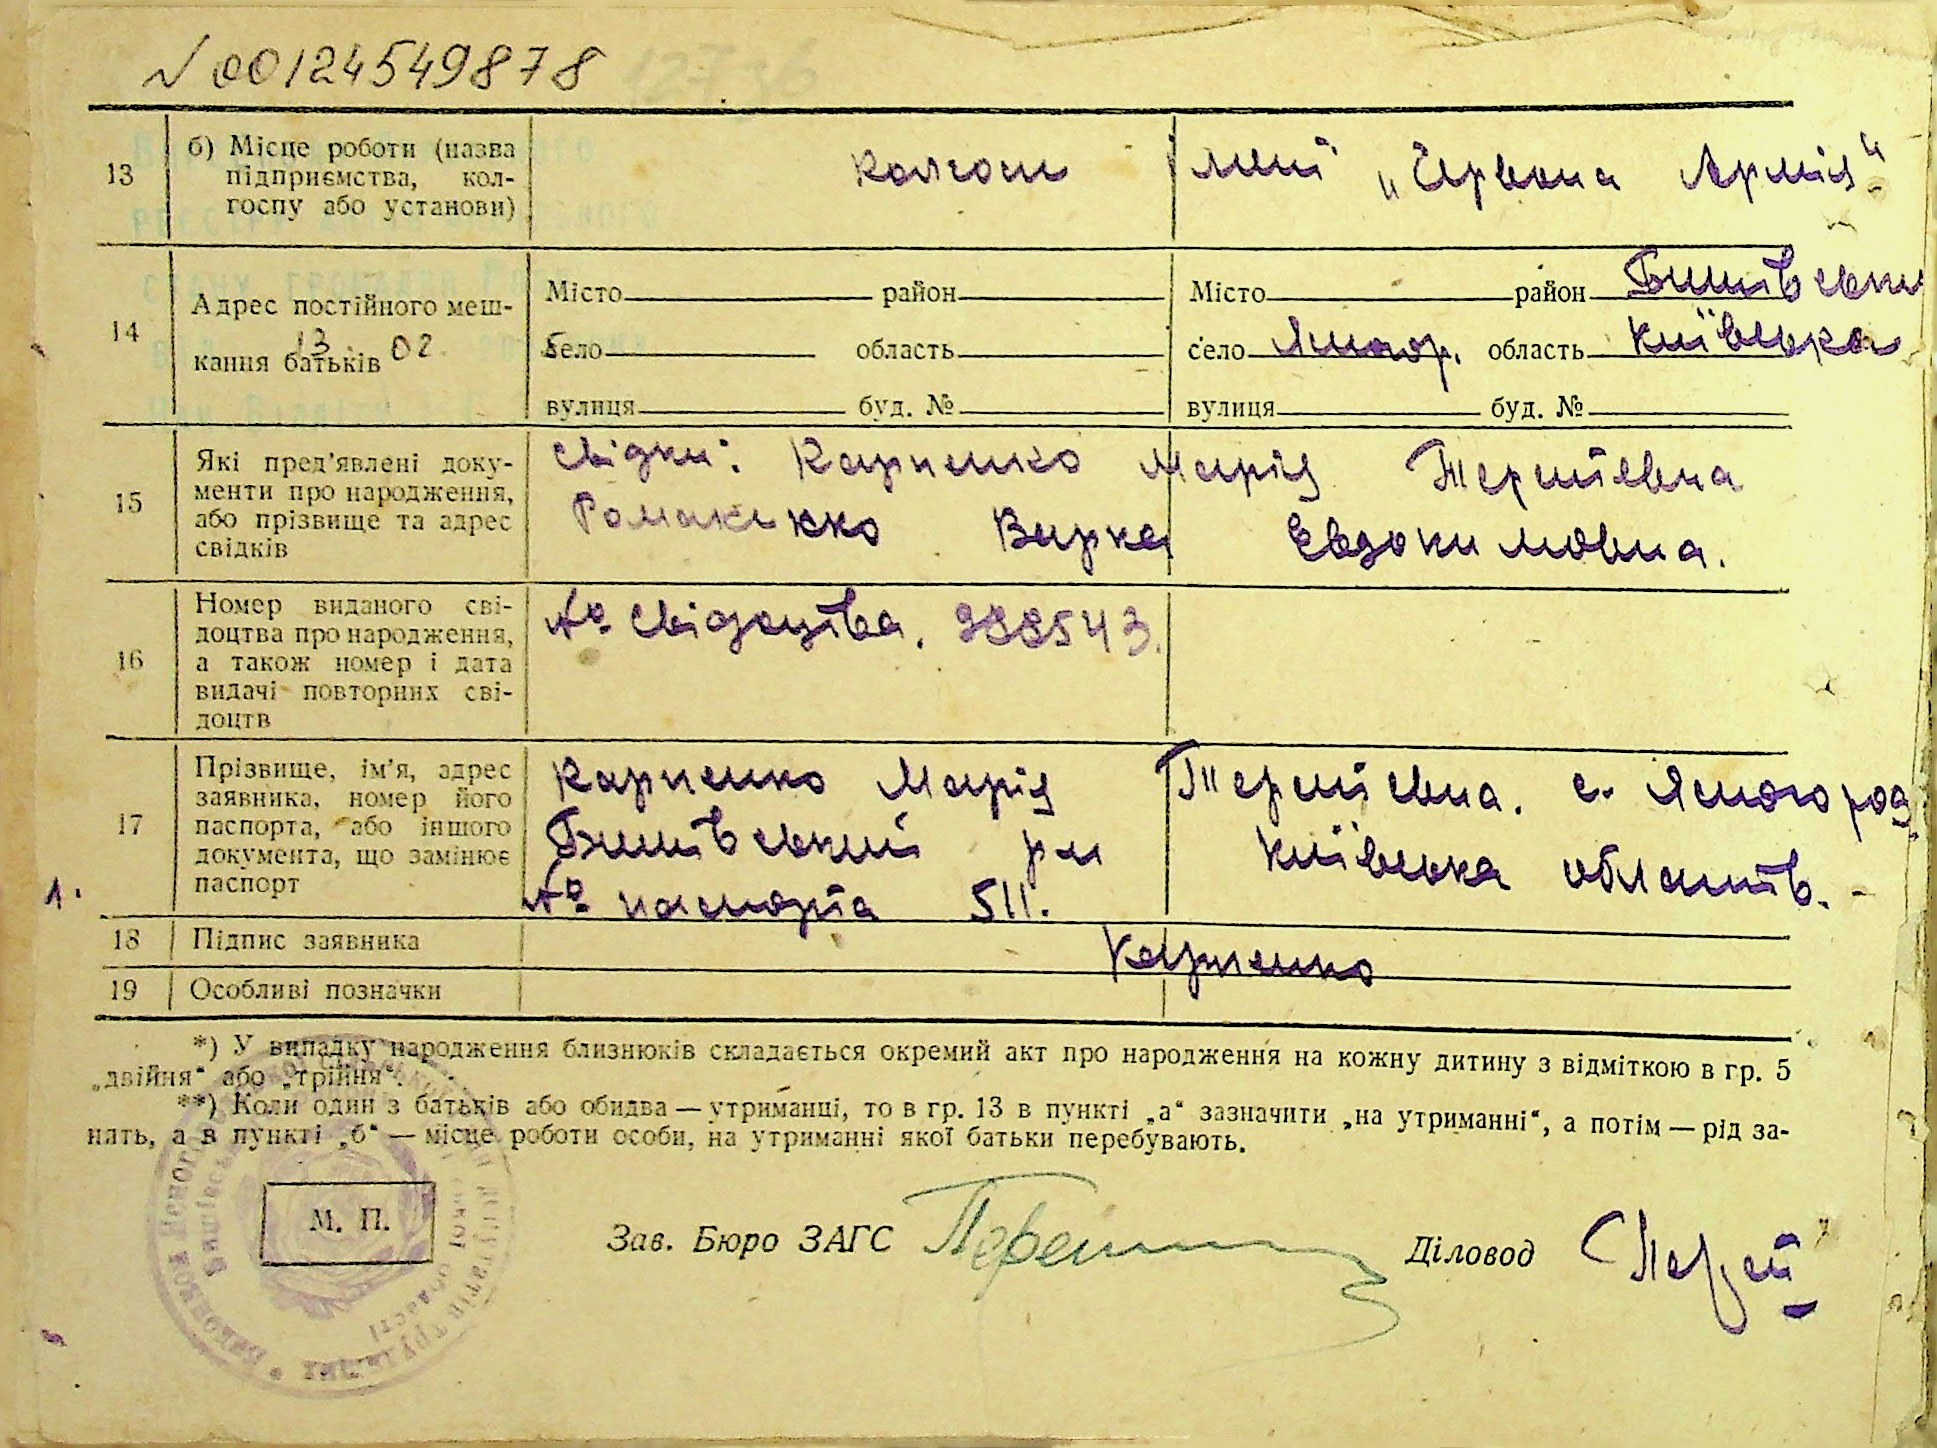 № 00124549878
13 б) Місце роботи (назва підприємства, кол-
госпу або установи)
колгосп імені „Червона Армія“
14 Адрес постійного меш-
кання батьків
13 02
Місто район
село область
вулиця буд. №
Місто район Бишівський
село Ясногор. область Київська
вулиця буд. №
15 Які пред’явлені доку-
менти про народження,
або прізвище та адрес
свідків
свідки: Карпенко Марія
Романенко Евдокимовна.
16 Номер виданого сві-
доцтва про народження,
а також номер і дата
видачі повторних сві-
доцтв
№ свідоцтва. 988543.
17 Прізвище, ім’я, адрес
заявника, номер його
паспорта, або іншого
документа, що замінює
паспорт
Карпенко Марія с. Ясногород.
Бишівський р-н Київська область.
№ паспорта 511.
18 Підпис заявника
Карпенко
19 Особливі позначки
*) У випадку народження близнюків складається окремий акт про народження на кожну дитину з відміткою в гр. 5
„двійня“ або „трійня“.
**) Коли один з батьків або обидва — утриманці, то в гр. 13 в пункті „а“ зазначити „на утриманні“, а потім — рід за-
нять, а в пункті „б“ — місце роботи особи, на утриманні якої батьки перебувають.
М. П.
Зав. Бюро ЗАГС
Діловод
1.